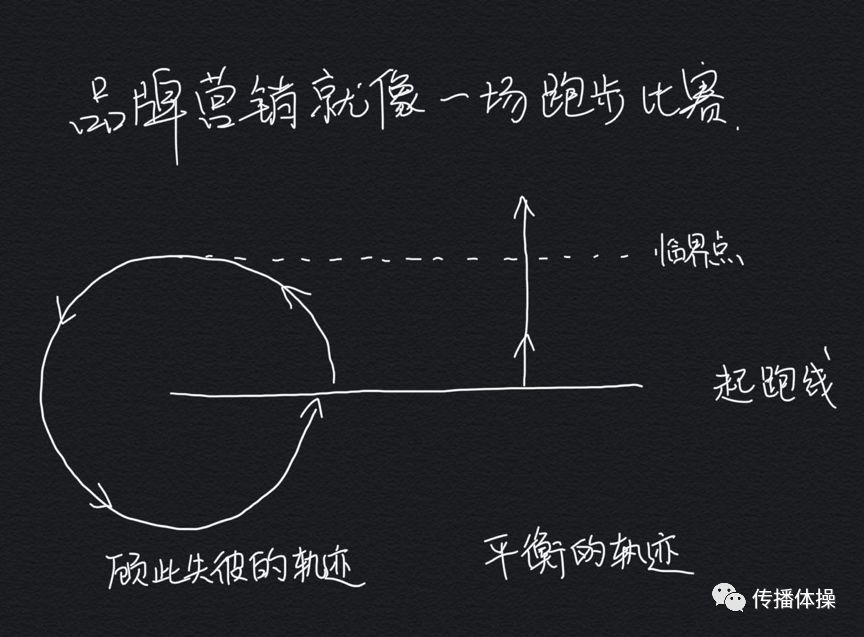 品牌营销就像一场跑步比赛.
临界点
起跑线
顾此失彼的轨迹
平衡的轨迹
传播体操